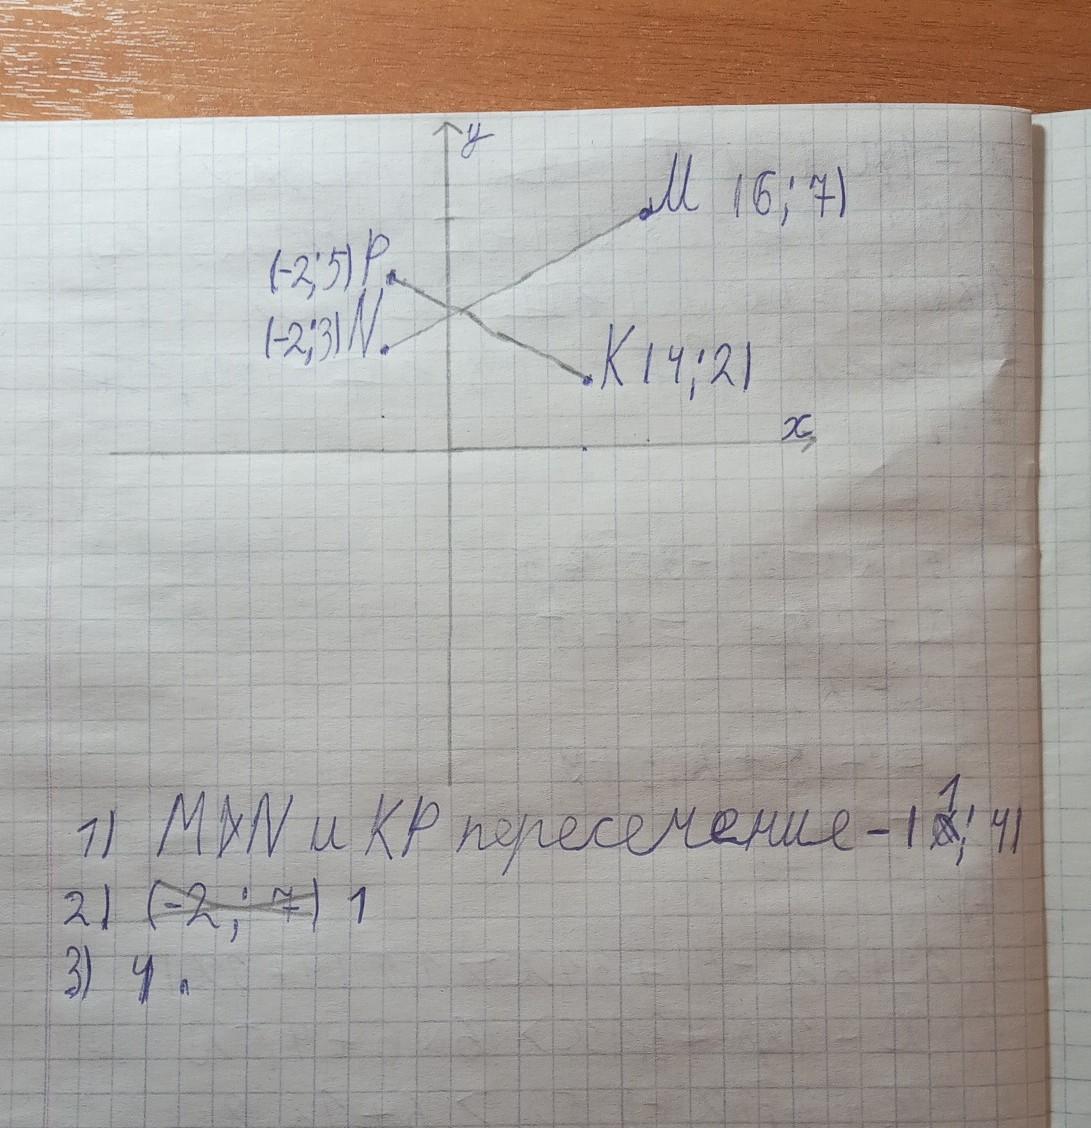 y
M (6; 7)
(-2; 5) P
(-2; 3) N
K (4; 2)
x
1) MN и KP пересечение - (1; 4)
2) (-2; 7) 1
3) 4.